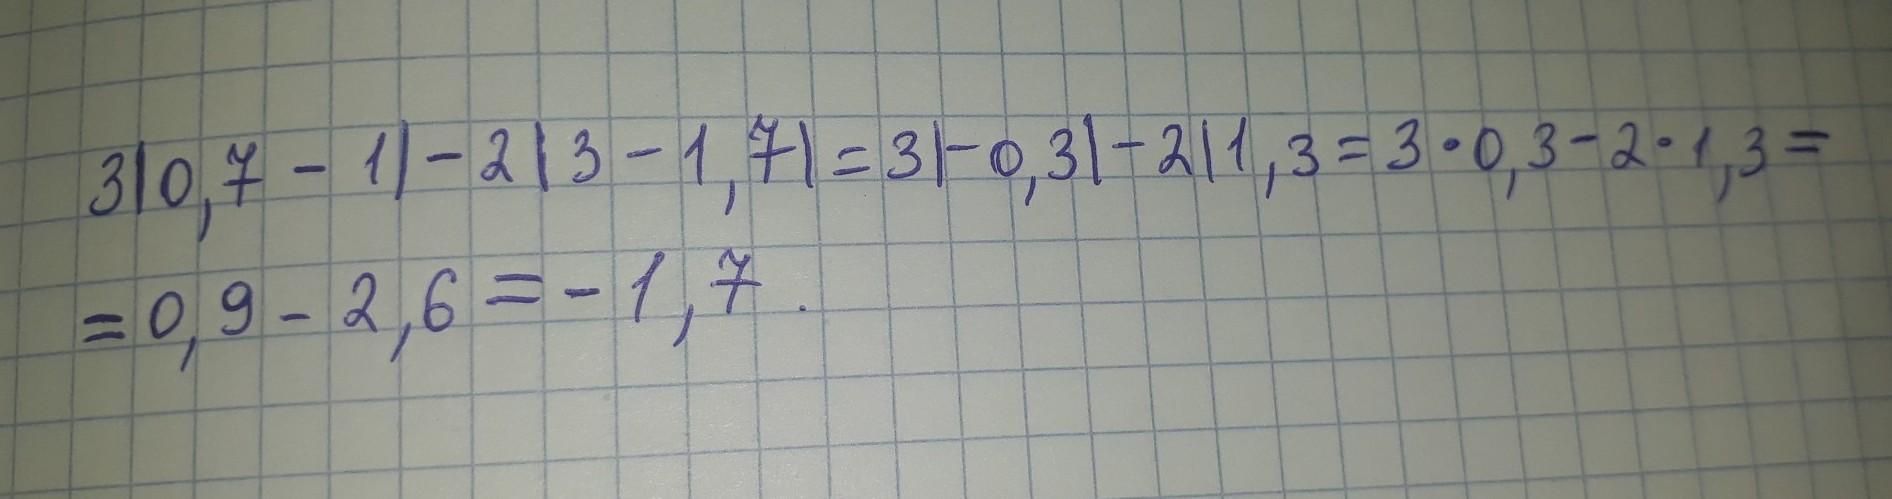 3|0,7 - 1| - 2|3 - 1,7| = 3|-0,3| - 2|1,3 = 3·0,3 - 2·1,3 =
= 0,9 - 2,6 = - 1,7.